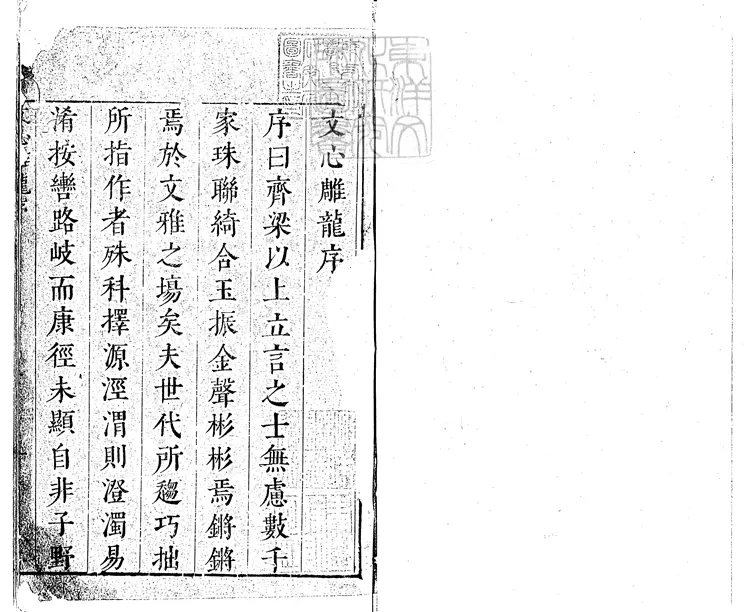 文心雕龍序
序曰齊梁以上立言之士無慮數千
家珠聯綺合玉振金聲彬彬焉鏘鏘
焉於文雅之塲矣夫世代所趨巧拙
所指作者殊科擇源涇渭則澄濁易
淆按轡路岐而康徑未顯自非子野